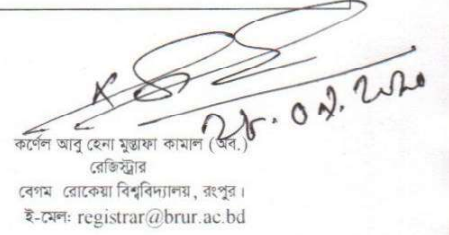 কর্ণেল আবু হেনা মুস্তাফা কামাল (অব.)
রেজিস্ট্রার
বেগম রোকেয়া বিশ্ববিদ্যালয়, রংপুর।
ই-মেল: registrar@brur.ac.bd